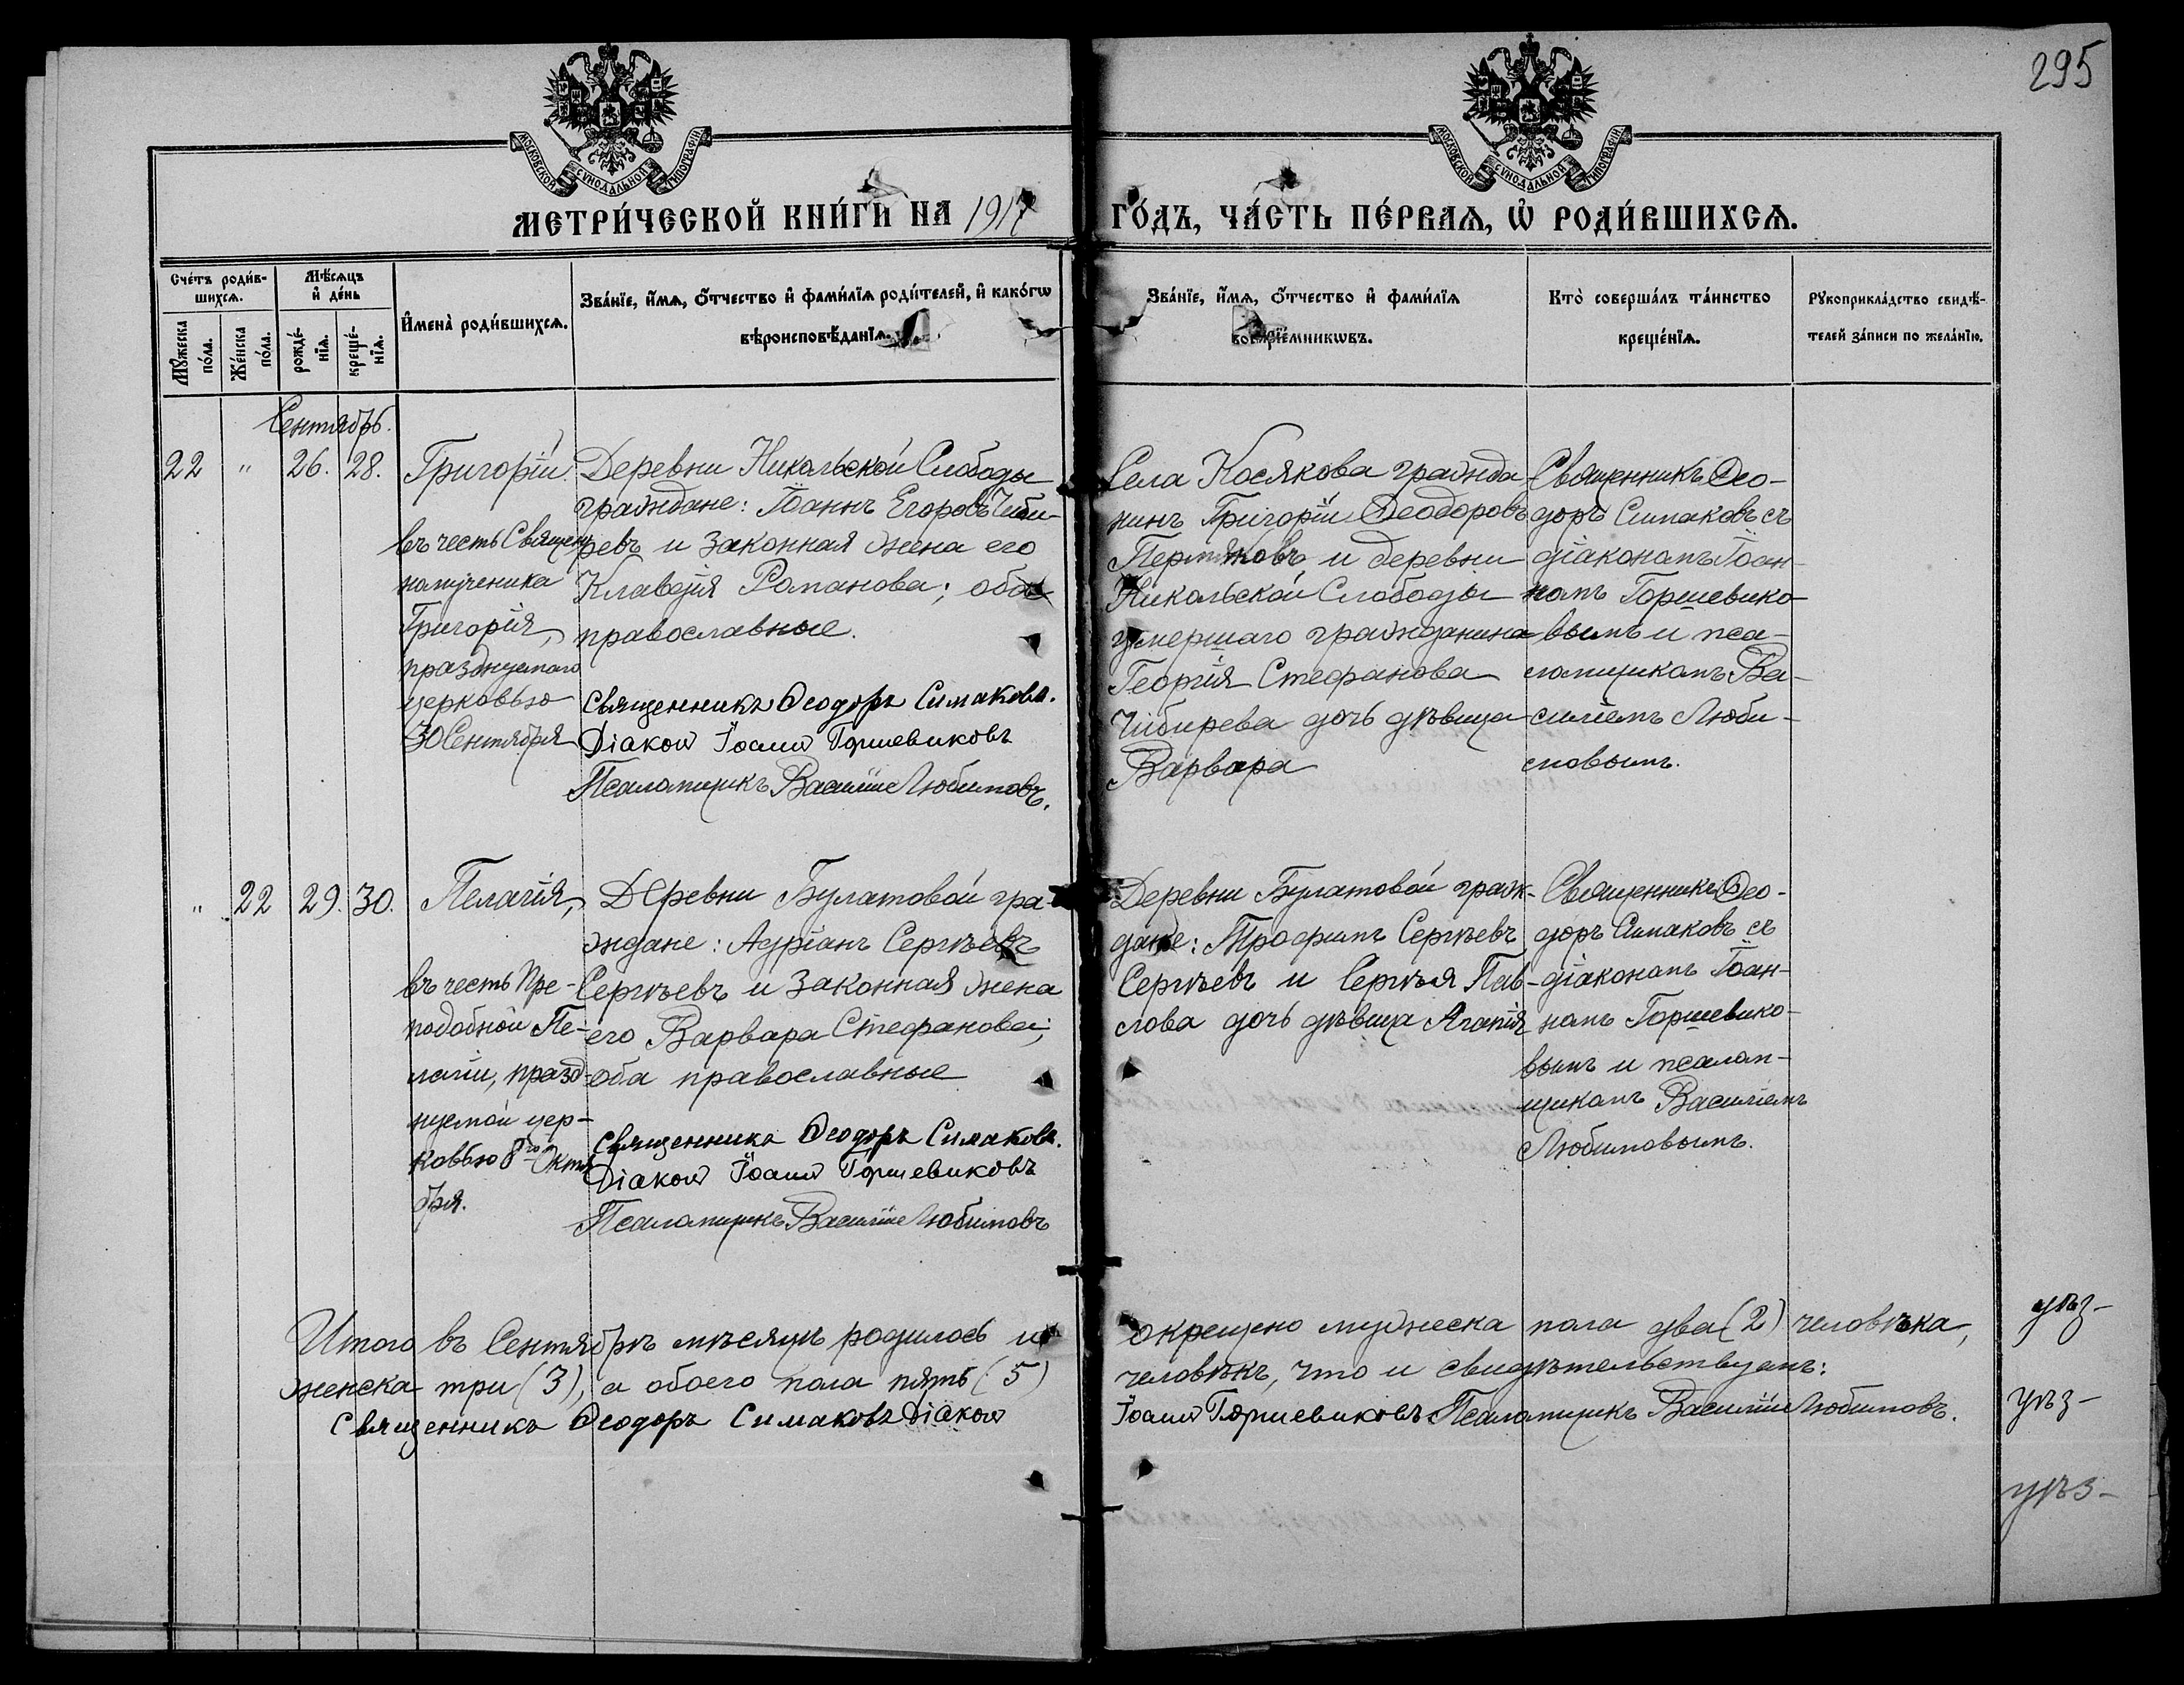 295
МОСКОВСКОЙ СѴНОДАЛЬНОЙ ТИПОГРАФІИ
МОСКОВСКОЙ СѴНОДАЛЬНОЙ ТИПОГРАФІИ
МЕТРИ́ЧЕСКОЙ КНИ́ГИ НА 1917 ГО́ДЪ, ЧА́СТЬ ПЕ́РВАѦ, Ѡ҆ РОДИ́ВШИХСѦ.
Сче́тъ роди́в-
шихсѧ.
Мѣ́сѧцъ
и҆ де́нь
Мꙋ́жеска
по́ла.
Же́нска
по́ла.
рожде́-
нїѧ.
креще́-
нїѧ.
И҆мена̀ роди́вшихсѧ.
Зва́нїе, и҆́мѧ, ѻ҆́тчество и҆ фами́лїѧ роди́телей, и҆ како́гѡ
вѣроисповѣ́данїѧ.
Зва́нїе, и҆́мѧ, ѻ҆́тчество и҆ фами́лїѧ
воспрїе́мникѡвъ.
Кто̀ соверша́лъ та́инство
креще́нїѧ.
Рꙋкоприкла́дство свидѣ́-
телей за́писи по жела́нїю.
Сентябрь.
22 " 26. 28.
Григорій.
въ честь Священ
номученика
Григорія,
празднуемаго
церковью
30 Сентября
Деревни Никольской Слободы
граждане: Іоаннъ Егоровъ Чиби-
ревъ и законная жена его
Клавдія Романова; оба
православные.
Священникъ Ѳеодоръ Симаковъ.
Діаконъ Іоаннъ Горшевиковъ
Псаломщикъ Василій Любимовъ.
Села Косякова гражда
нинъ Григорій Ѳеодоровъ
Пермяковъ и деревни
Никольской Слободы
умершаго гражданина
Георгія Стефанова
Чибирева дочь дѣвица
Варвара
Священникъ Ѳео-
доръ Симаковъ съ
діакономъ Іоан-
номъ Горшевико-
вымъ и пса-
ломщикомъ Ва-
силіемъ Люби-
мовымъ.
" 22 29. 30.
Пелагія,
въ честь Пре-
подобной Пе-
лагіи, празд-
нуемой цер-
ковью 8го Октя
бря.
Деревни Булатовой гра-
ждане: Адріанъ Сергѣевъ
Сергѣевъ и законная жена
его Варвара Стефанова;
оба православные
Священникъ Ѳеодоръ Симаковъ.
Діаконъ Іоаннъ Горшевиковъ
Псаломщикъ Василій Любимовъ
Деревни Булатовой граж-
дане: Трофимъ Сергѣевъ
Сергѣевъ и Сергѣя Пав-
лова дочь дѣвица Агапія
Священникъ Ѳео-
доръ Симаковъ съ
діакономъ Іоан-
номъ Горшевико-
вымъ и псалом-
щикомъ Василіемъ
Любимовымъ.
Итого въ Сентябрѣ мѣсяцѣ родилось и окрещено мужеска пола два (2) человѣка,
женска три (3), а обоего пола пять (5) человѣкъ, что и свидѣтельствуемъ:
Священникъ Ѳеодоръ Симаковъ Діаконъ Іоаннъ Горшевиковъ Псаломщикъ Василій Любимовъ.